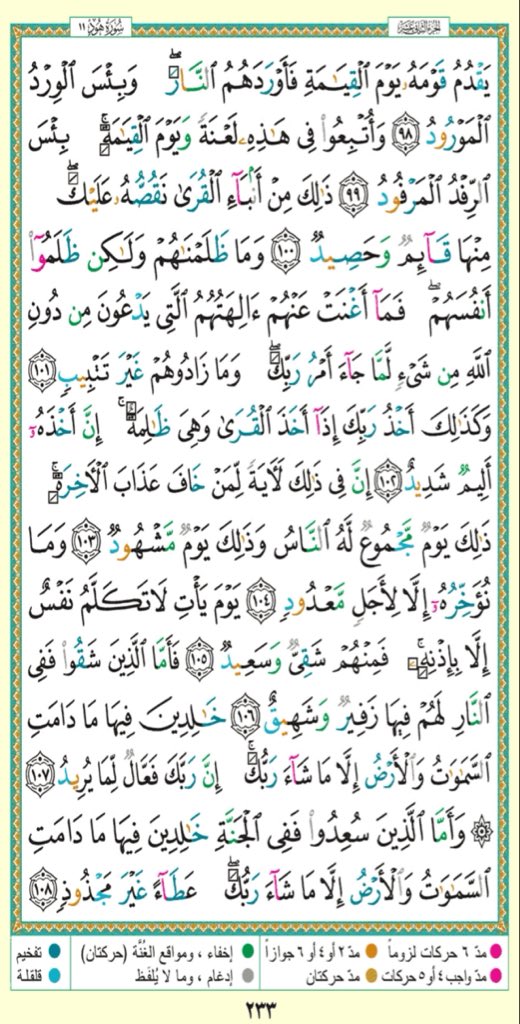 سُورَةُ هُودٍ ١١
الجزء الثاني عشر
يَقْدُمُ قَوْمَهُۥ يَوْمَ ٱلْقِيَـٰمَةِ فَأَوْرَدَهُمُ ٱلنَّارَ ۖ وَبِئْسَ ٱلْوِرْدُ
ٱلْمَوْرُودُ ٩٨ وَأُتْبِعُوا۟ فِى هَـٰذِهِۦ لَعْنَةً وَيَوْمَ ٱلْقِيَـٰمَةِ ۚ بِئْسَ
ٱلرِّفْدُ ٱلْمَرْفُودُ ٩٩ ذَٰلِكَ مِنْ أَنۢبَآءِ ٱلْقُرَىٰ نَقُصُّهُۥ عَلَيْكَ ۖ
مِنْهَا قَآئِمٌ وَحَصِيدٌ ١٠٠ وَمَا ظَلَمْنَـٰهُمْ وَلَـٰكِن ظَلَمُوٓا۟
أَنفُسَهُمْ ۖ فَمَآ أَغْنَتْ عَنْهُمْ ءَالِهَتُهُمُ ٱلَّتِى يَدْعُونَ مِن دُونِ
ٱللَّهِ مِن شَىْءٍ لَّمَّا جَآءَ أَمْرُ رَبِّكَ ۖ وَمَا زَادُوهُمْ غَيْرَ تَتْبِيبٍ ١٠١
وَكَذَٰلِكَ أَخْذُ رَبِّكَ إِذَآ أَخَذَ ٱلْقُرَىٰ وَهِىَ ظَـٰلِمَةٌ ۚ إِنَّ أَخْذَهُۥٓ
أَلِيمٌ شَدِيدٌ ١٠٢ إِنَّ فِى ذَٰلِكَ لَـَٔايَةً لِّمَنْ خَافَ عَذَابَ ٱلْـَٔاخِرَةِ ۚ
ذَٰلِكَ يَوْمٌ مَّجْمُوعٌ لَّهُ ٱلنَّاسُ وَذَٰلِكَ يَوْمٌ مَّشْهُودٌ ١٠٣ وَمَا
نُؤَخِّرُهُۥٓ إِلَّا لِأَجَلٍ مَّعْدُودٍ ١٠٤ يَوْمَ يَأْتِ لَا تَكَلَّمُ نَفْسٌ
إِلَّا بِإِذْنِهِۦ ۚ فَمِنْهُمْ شَقِىٌّ وَسَعِيدٌ ١٠٥ فَأَمَّا ٱلَّذِينَ شَقُوا۟ فَفِى
ٱلنَّارِ لَهُمْ فِيهَا زَفِيرٌ وَشَهِيقٌ ١٠٦ خَـٰلِدِينَ فِيهَا مَا دَامَتِ
ٱلسَّمَـٰوَٰتُ وَٱلْأَرْضُ إِلَّا مَا شَآءَ رَبُّكَ ۚ إِنَّ رَبَّكَ فَعَّالٌ لِّمَا يُرِيدُ ١٠٧
۞ وَأَمَّا ٱلَّذِينَ سُعِدُوا۟ فَفِى ٱلْجَنَّةِ خَـٰلِدِينَ فِيهَا مَا دَامَتِ
ٱلسَّمَـٰوَٰتُ وَٱلْأَرْضُ إِلَّا مَا شَآءَ رَبُّكَ ۖ عَطَآءً غَيْرَ مَجْذُوذٍ ١٠٨
مدّ ٦ حركات لزوماً
مدّ ٢ أو ٤ أو ٦ جوازاً
إخفاء ، ومواقع الغُنَّة (حركتان)
تفخيم
مدّ واجب ٤ أو ٥ حركات
مدّ حركتان
إدغام ، وما لا يُلفَظ
قلقلة
٢٣٣